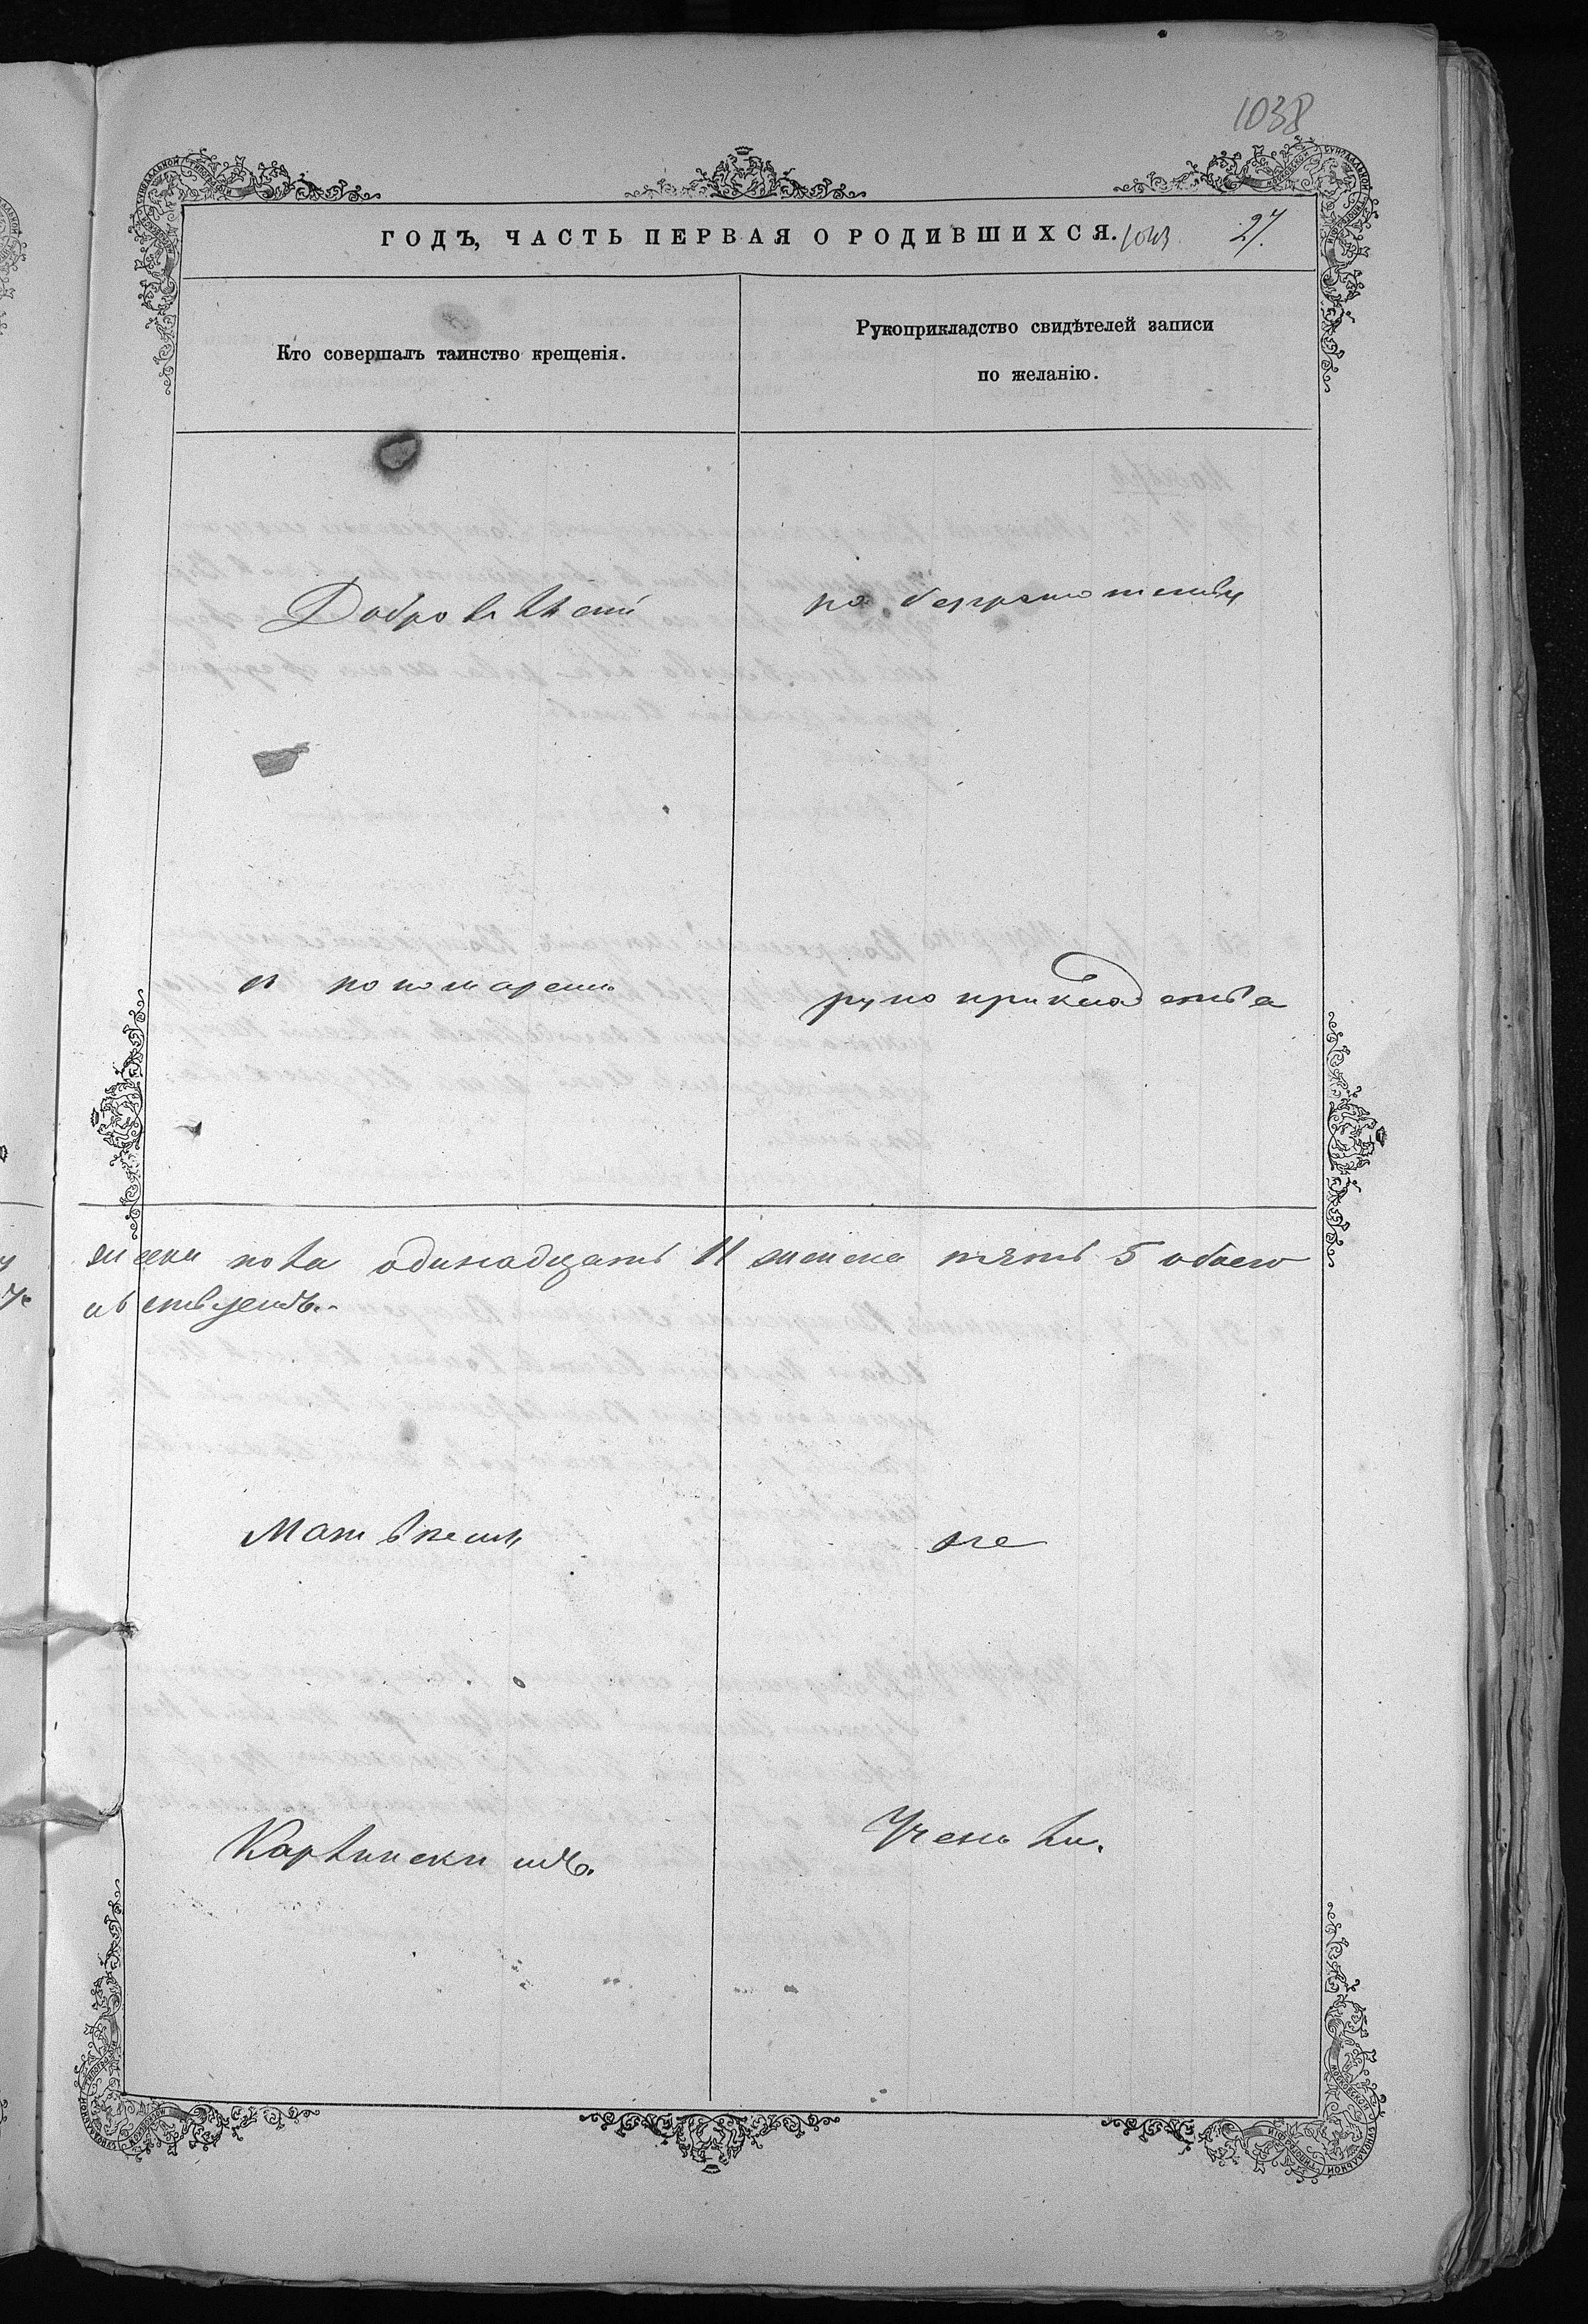 1038
ГОДЪ, ЧАСТЬ ПЕРВАЯ О РОДИВШИХСЯ. 1043 27.
Кто совершалъ таинство крещенія.
Рукоприкладство свидѣтелей записи
по желанію.
по безграмотству
и пономаремъ
рукоприкладства
жеска пола одинадцать 11 женска пять 5 обоего
Матвѣемъ
не
Карвински мъ.
Учени ли.